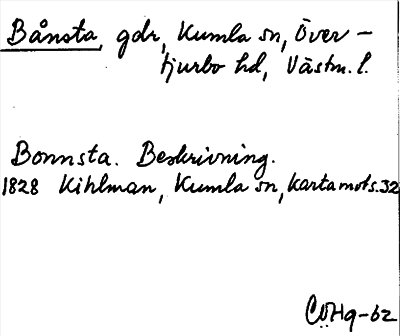 Bånsta, gdr, Kumla sn, Över-
tjurbo hd, Västm. l.
Bonnsta. Beskrivning.
1828 Kihlman, Kumla sn, karta mots. 32
CÖHg-62